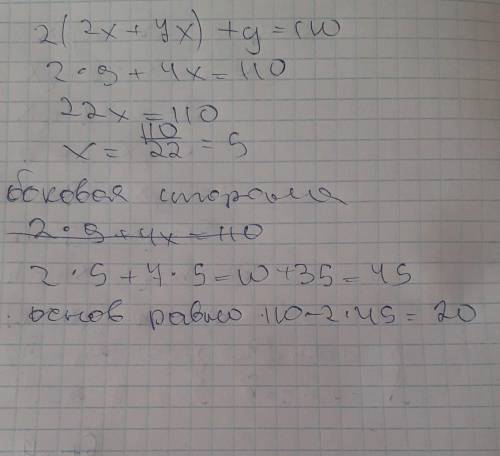 2(2x + 7x) + y = 110
2 · 9 + 4x = 110
22x = 110
x = 110/22 = 5
боковая сторона
2 · 9 + 4x = 110
2 · 5 + 7 · 5 = 10 + 35 = 45
основ равно 110 - 2 · 45 = 20